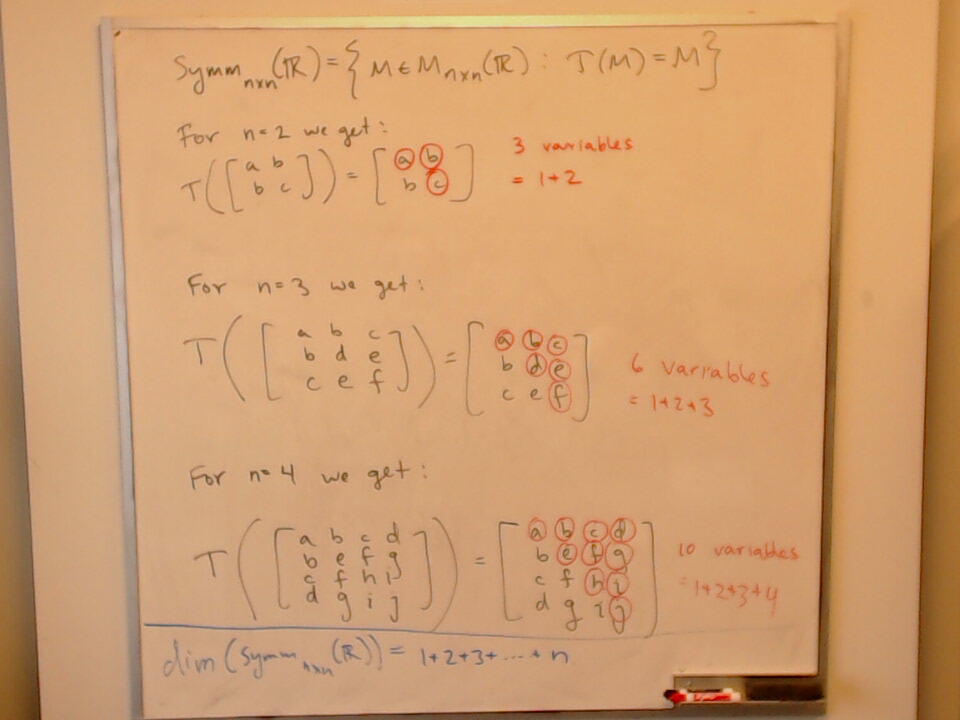 Symm_{nxn}(ℝ) = { M ∈ M_{nxn}(ℝ) : T(M) = M }
For n=2 we get:
T([a b
b c]) = [a b
b c]
3 variables
= 1+2
For n=3 we get:
T([a b c
b d e
c e f]) = [a b c
b d e
c e f]
6 variables
= 1+2+3
For n=4 we get:
T([a b c d
b e f g
c f h i
d g i j]) = [a b c d
b e f g
c f h i
d g i j]
10 variables
= 1+2+3+4
dim(Symm_{nxn}(ℝ)) = 1+2+3+...+n